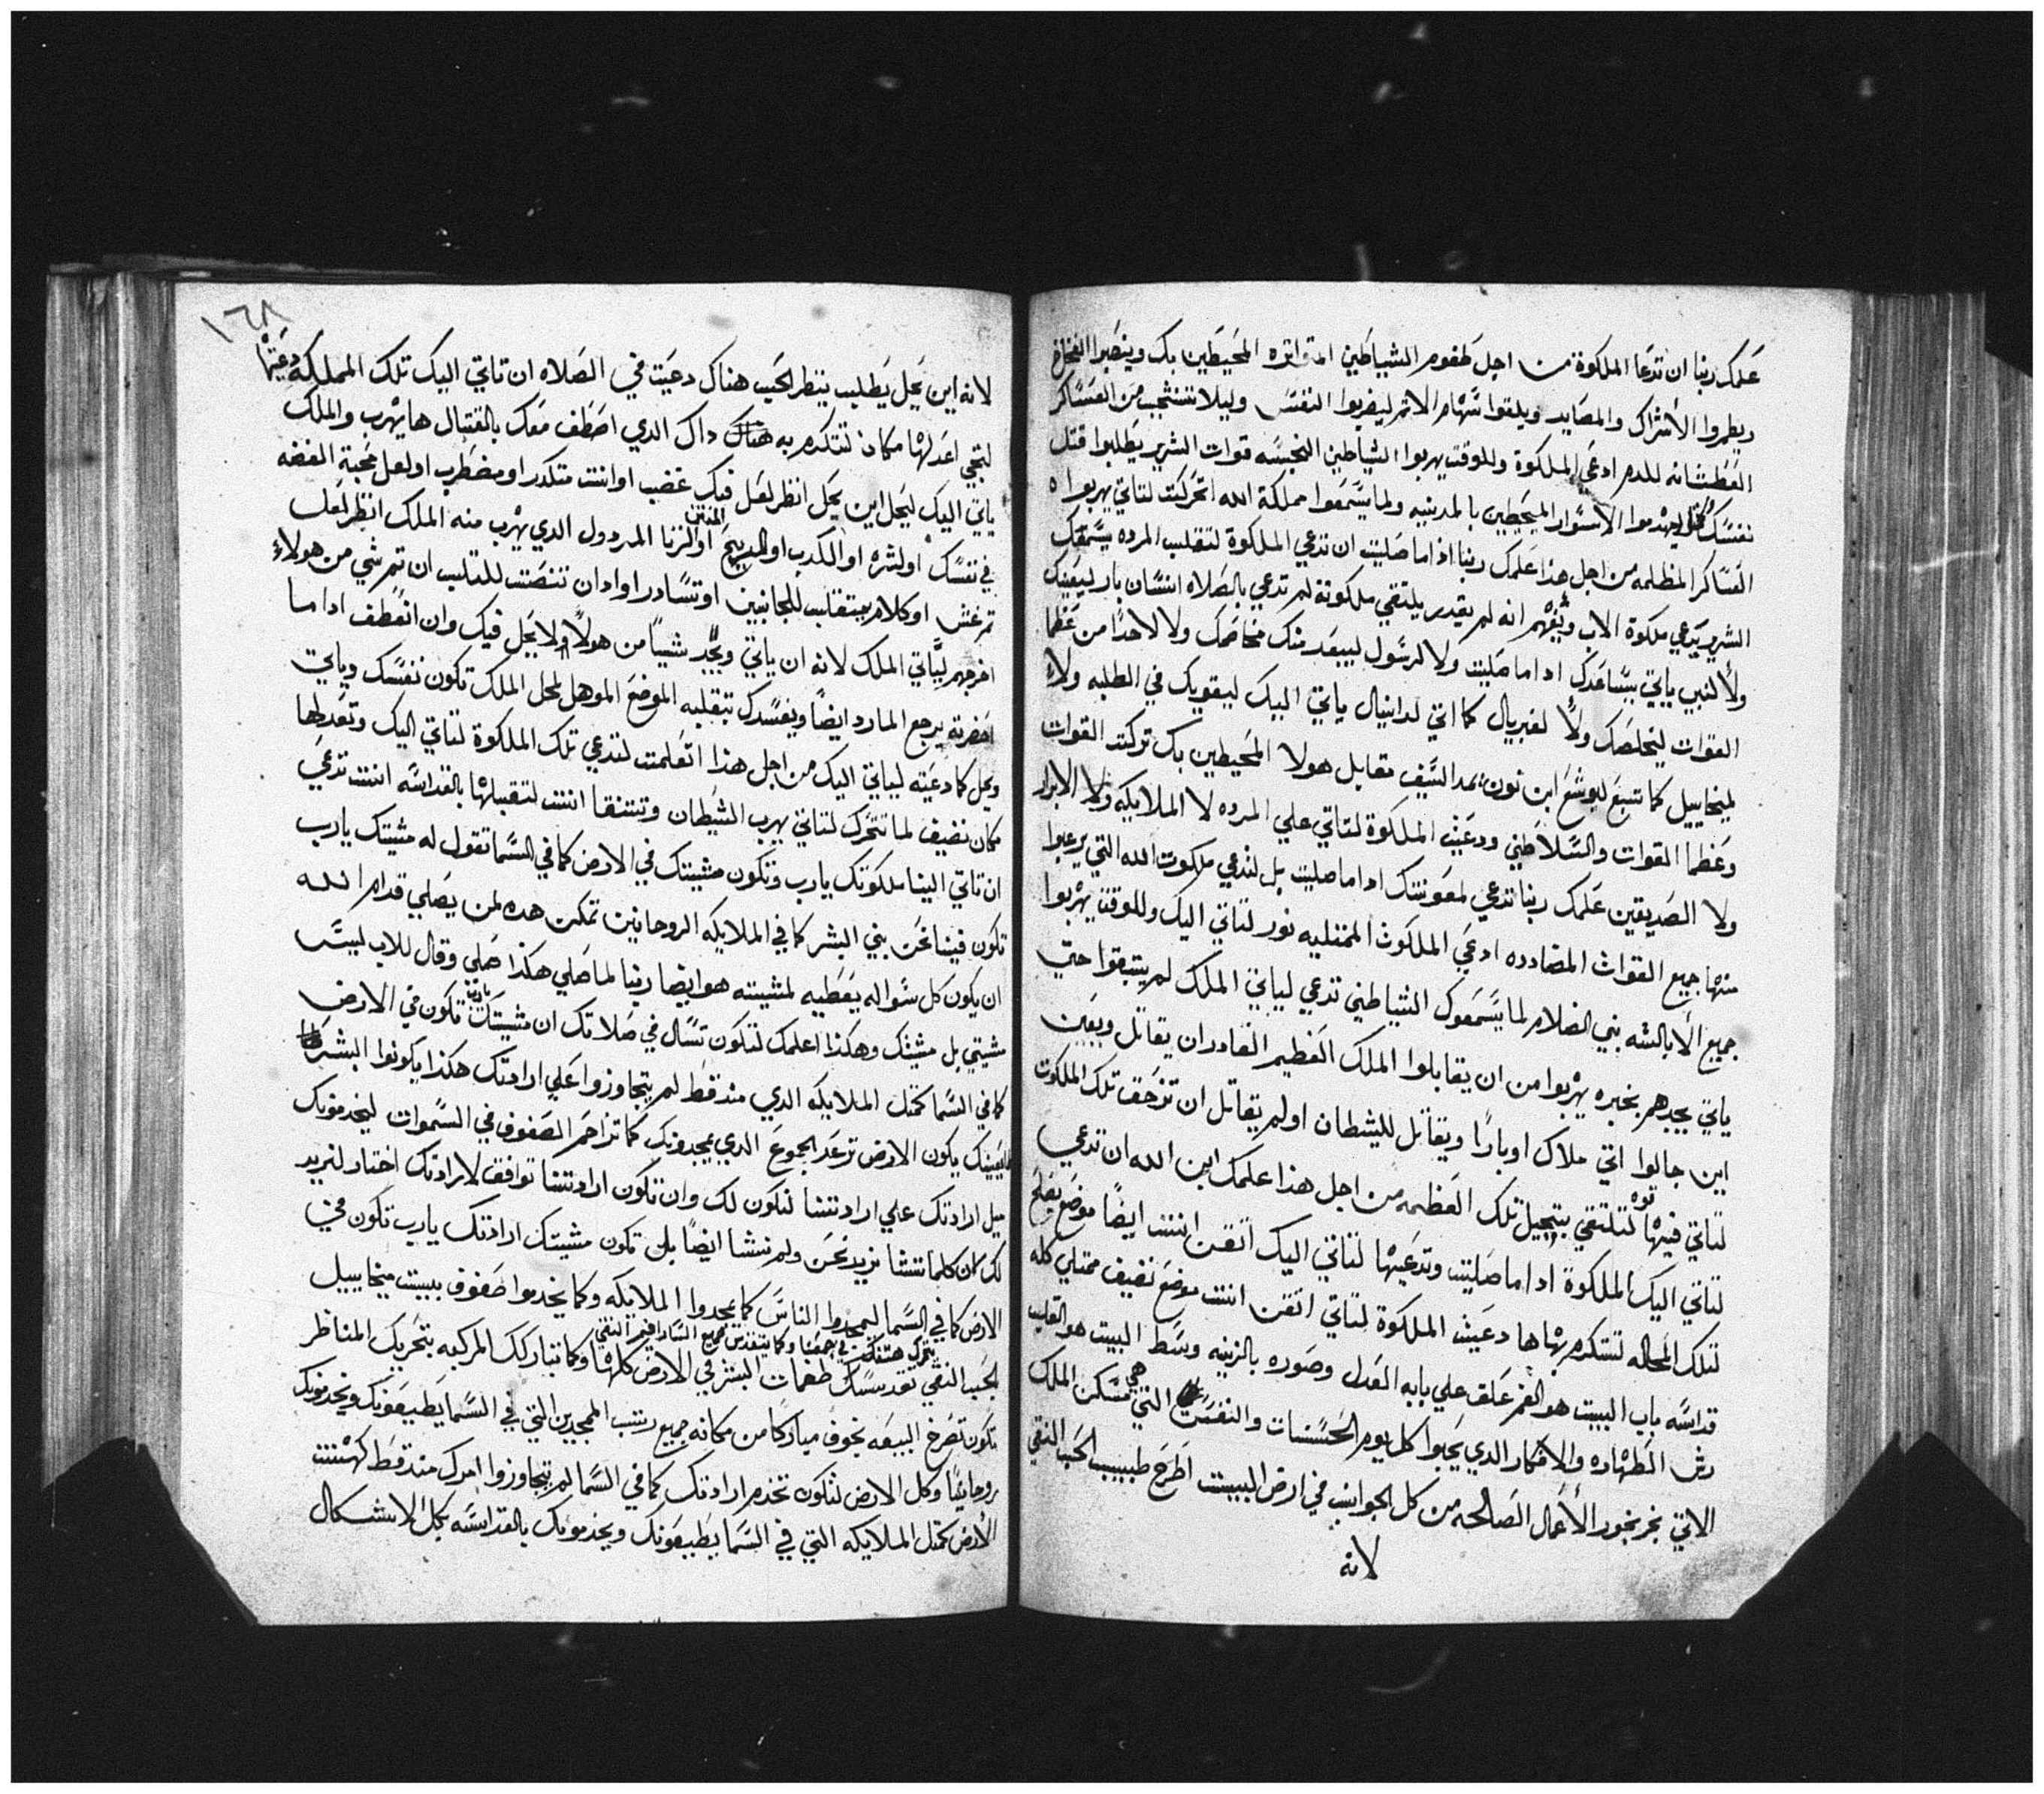 علمك ربنا ان تدعا الملكوة من اجل طغوم الشياطين المتواتره المحيطين بك وينصبوا الفخاخ
ويطمروا الأشراك والمصايد ويلقوا سهام الاثم ليضربوا النفس وليلا تنسحب من العساكر
العطشانه للدم ادعي الملكوة وللوقت يهربوا الشياطين النجسه قوات الشرير يطلبوا قتل
نفسك ليهدموا الاسوار المحيطين بالمدينه ولما يسمعوا مملكة الله اتحركت لتاتي يهربوا
العساكر المظلمه من اجل هذا علمك ربنا اذا ما صليت ان تدعي الملكوة لتقلب المرده يسمعك
الشرير تدعي ملكوة الاب ويفهم انه لم يقدر يلتقي ملكوته لم تدعي بالصلاه انسان بار ليعينك
ولا لنبي ياتي يساعدك اداما صليت ولا لرسول ليبعد منك مخاصمك ولا لاحدًا من عظما
القوات ليخلصك ولا لغبريال كما اتي لدانيال ياتي اليك ليقويك في الطلبه ولا
لميخاييل كما تبع ليوشع ابن نون بمد السيف مقابل هولا المحيطين بك تركت القوات
وعظما القوات والسلاطين ودعيت الملكوة لتاتي علي المرده لا الملايكه ولا الابرار
ولا الصديقين علمك ربنا تدعي لمعونتك اداما صليت بل لتدعي ملكوت الله التي يرعبوا
منها جميع القوات المضادده ادعي الملكوت الممتليه نور لتاتي اليك وللوقت يهربوا
جميع الأبالسه بني الضلام لما يسمعوك الشياطين تدعي لياتي الملك لم يتبقوا حتي
ياتي يجدهم بخبره يهربوا من ان يقابلوا الملك العظيم القادر ان يقاتل ويعين
اين جالوا اتي ملاك او بارًا ويقاتل للشيطان او لم يقاتل ان تزحق تلك الملكوت
لتاتي فيها قوه لتلتقي بتبجيل تلك العظمه من اجل هذا علمك ابن الله ان تدعي
لتاتي اليك الملكوة اداما صليت وتدعيها لتاتي اليك اتقن انت ايضًا موضع يصلح
لتلك المحاله لتتكرم بها ها دعيت الملكوة لتاتي اتقن انت موضع نضيف ممتلي كله
قداسه باب البيت هو الفم علق علي بابه العدل وصوره بالزينه وسط البيت هو القلب
رش الطهاره والافكار الدي يحبوا كل يوم الحسنات والنفس التي هي مسكن الملك
الاتي بخر بخور الأعمال الصالحه من كل الجوانب في ارض البيت اطرح طيب الحب النقي
لانه
١٦٨
لانه اين يحل يطلب ينتظر الحب هناك دعيت في الصلاه ان تاتي اليك تلك المملكه دعيتها
لتجي اعد لها مكان تتكرم به داك الدي اصطف معك بالقتال ها يهرب والملك
ياتي اليك ليحل اين يحل انظر لعل فيك غضب او انت متكدر او مضطرب او لعل محبة الفضه
في نفسك او لشره او الكدب او المدبح المنتن او لزنا المردول الدي يهرب منه الملك انظر لعل
تم غش او كلام يتقلب للمجانين او تسادر او ادان تنصت للتلب ان تم شي من هولاء
اخرجهم ليًاتي الملك لانه ان ياتي ويجد شييًا من هولاء ولا يحل فيك وان انعطف اداما
احضرته يرجع المارد ايضًا ويفسدك بتقلبه الموضع الموهل لمحل الملك تكون نفسك وياتي
ويحل كما دعيته لياتي اليك من اجل هذا اتعلمت لتدعي تلك الملكوة لتاتي اليك وتعد لها
مكان نضيف لما تتحرك لتاتي يهرب الشيطان وتتنقا انت لتقبلها بالقداسه انت تدعي
ان تاتي الينا ملكوتك يارب وتكون مشيتك في الارض كما في السما تقول له مشيتك يارب
تكون فينا نحن بني البشر كما في الملايكه الروحانين تمكن هده لمن يصلي قدام الله
ان يكون كل سواله يعطيه لمشيته هو ايضا ربنا لما صلي هكذا صلي وقال للاب ليس
مشيتي بل مشيتك وهكذا اعلمك لتكون تسال في صلاتك ان مشيتك يارب تكون في الارض
كما في السما كمثل الملايكه الدي مند قط لم يتجاوزوا علي ارادتك هكذا يكونوا البشر
يكون الارض ترعد الجموع الدي يمجدونك كما تزاحم الصفوف في السموات ليخدمونك
ميل ارادتك علي ارادتنا لتكون لك وان تكون ارادتنا توافق لارادتك اختار لنريد
لك ان كلما تشا نريد نحن ولم نشا ايضًا بل تكون مشيتك ارادتك يارب تكون في
الارض كما في السما ليمجدوا الناس كما يمجدوا الملايكه وكما يخدموا صفوف بيت ميخاييل
يتحرك هتفك في جمعنا وكما يتقدس جميع السارافيم النقي
الحب النقي تقدسك طغمات البشر في الارض كلها وكما تباركك المركبه بتحريك المناظر
تكون تصرخ البيعه بخوف مباركًا من مكانه جميع رتب الممجدين التي في السما يطيعونك ويخدمونك
روحانيًا وكل الارض لتكون تخدم ارادتك كما في السما لم يتجاوزوا امرك مند قط كهنت
الأرض كمثل الملايكه التي في السما يطيعونك ويخدمونك بالقداسه بكل الاشكال